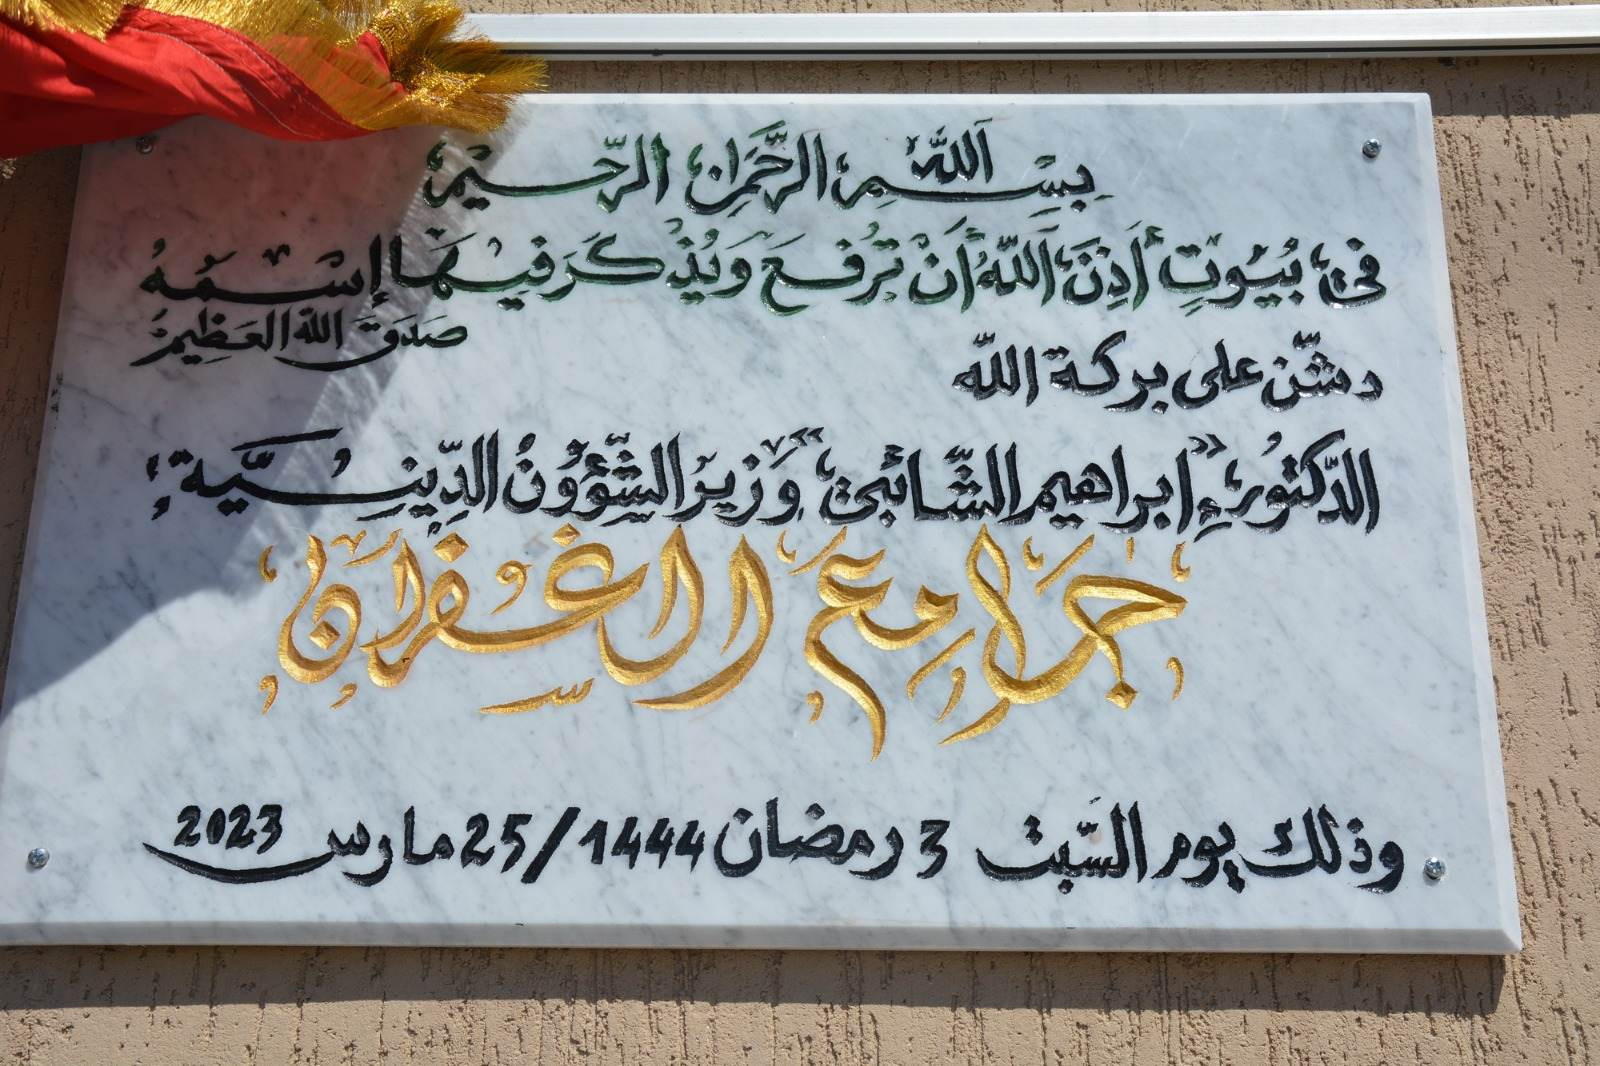 بِسْمِ اللهِ الرَّحْمَنِ الرَّحِيمِ
في بُيُوتٍ أَذِنَ اللهُ أَنْ تُرْفَعَ وَيُذْكَرَ فِيهَا إسْمُهُ
صَدَقَ اللهُ العَظِيمُ
دشّن على بركة اللّه
الدّكتور "إبراهيم الشّائبي" وزير الشّؤون الدّينيّة
جَامِع الغُفْرَان
وذلك يوم السّبت 3 رمضان 1444/25 مارس 2023